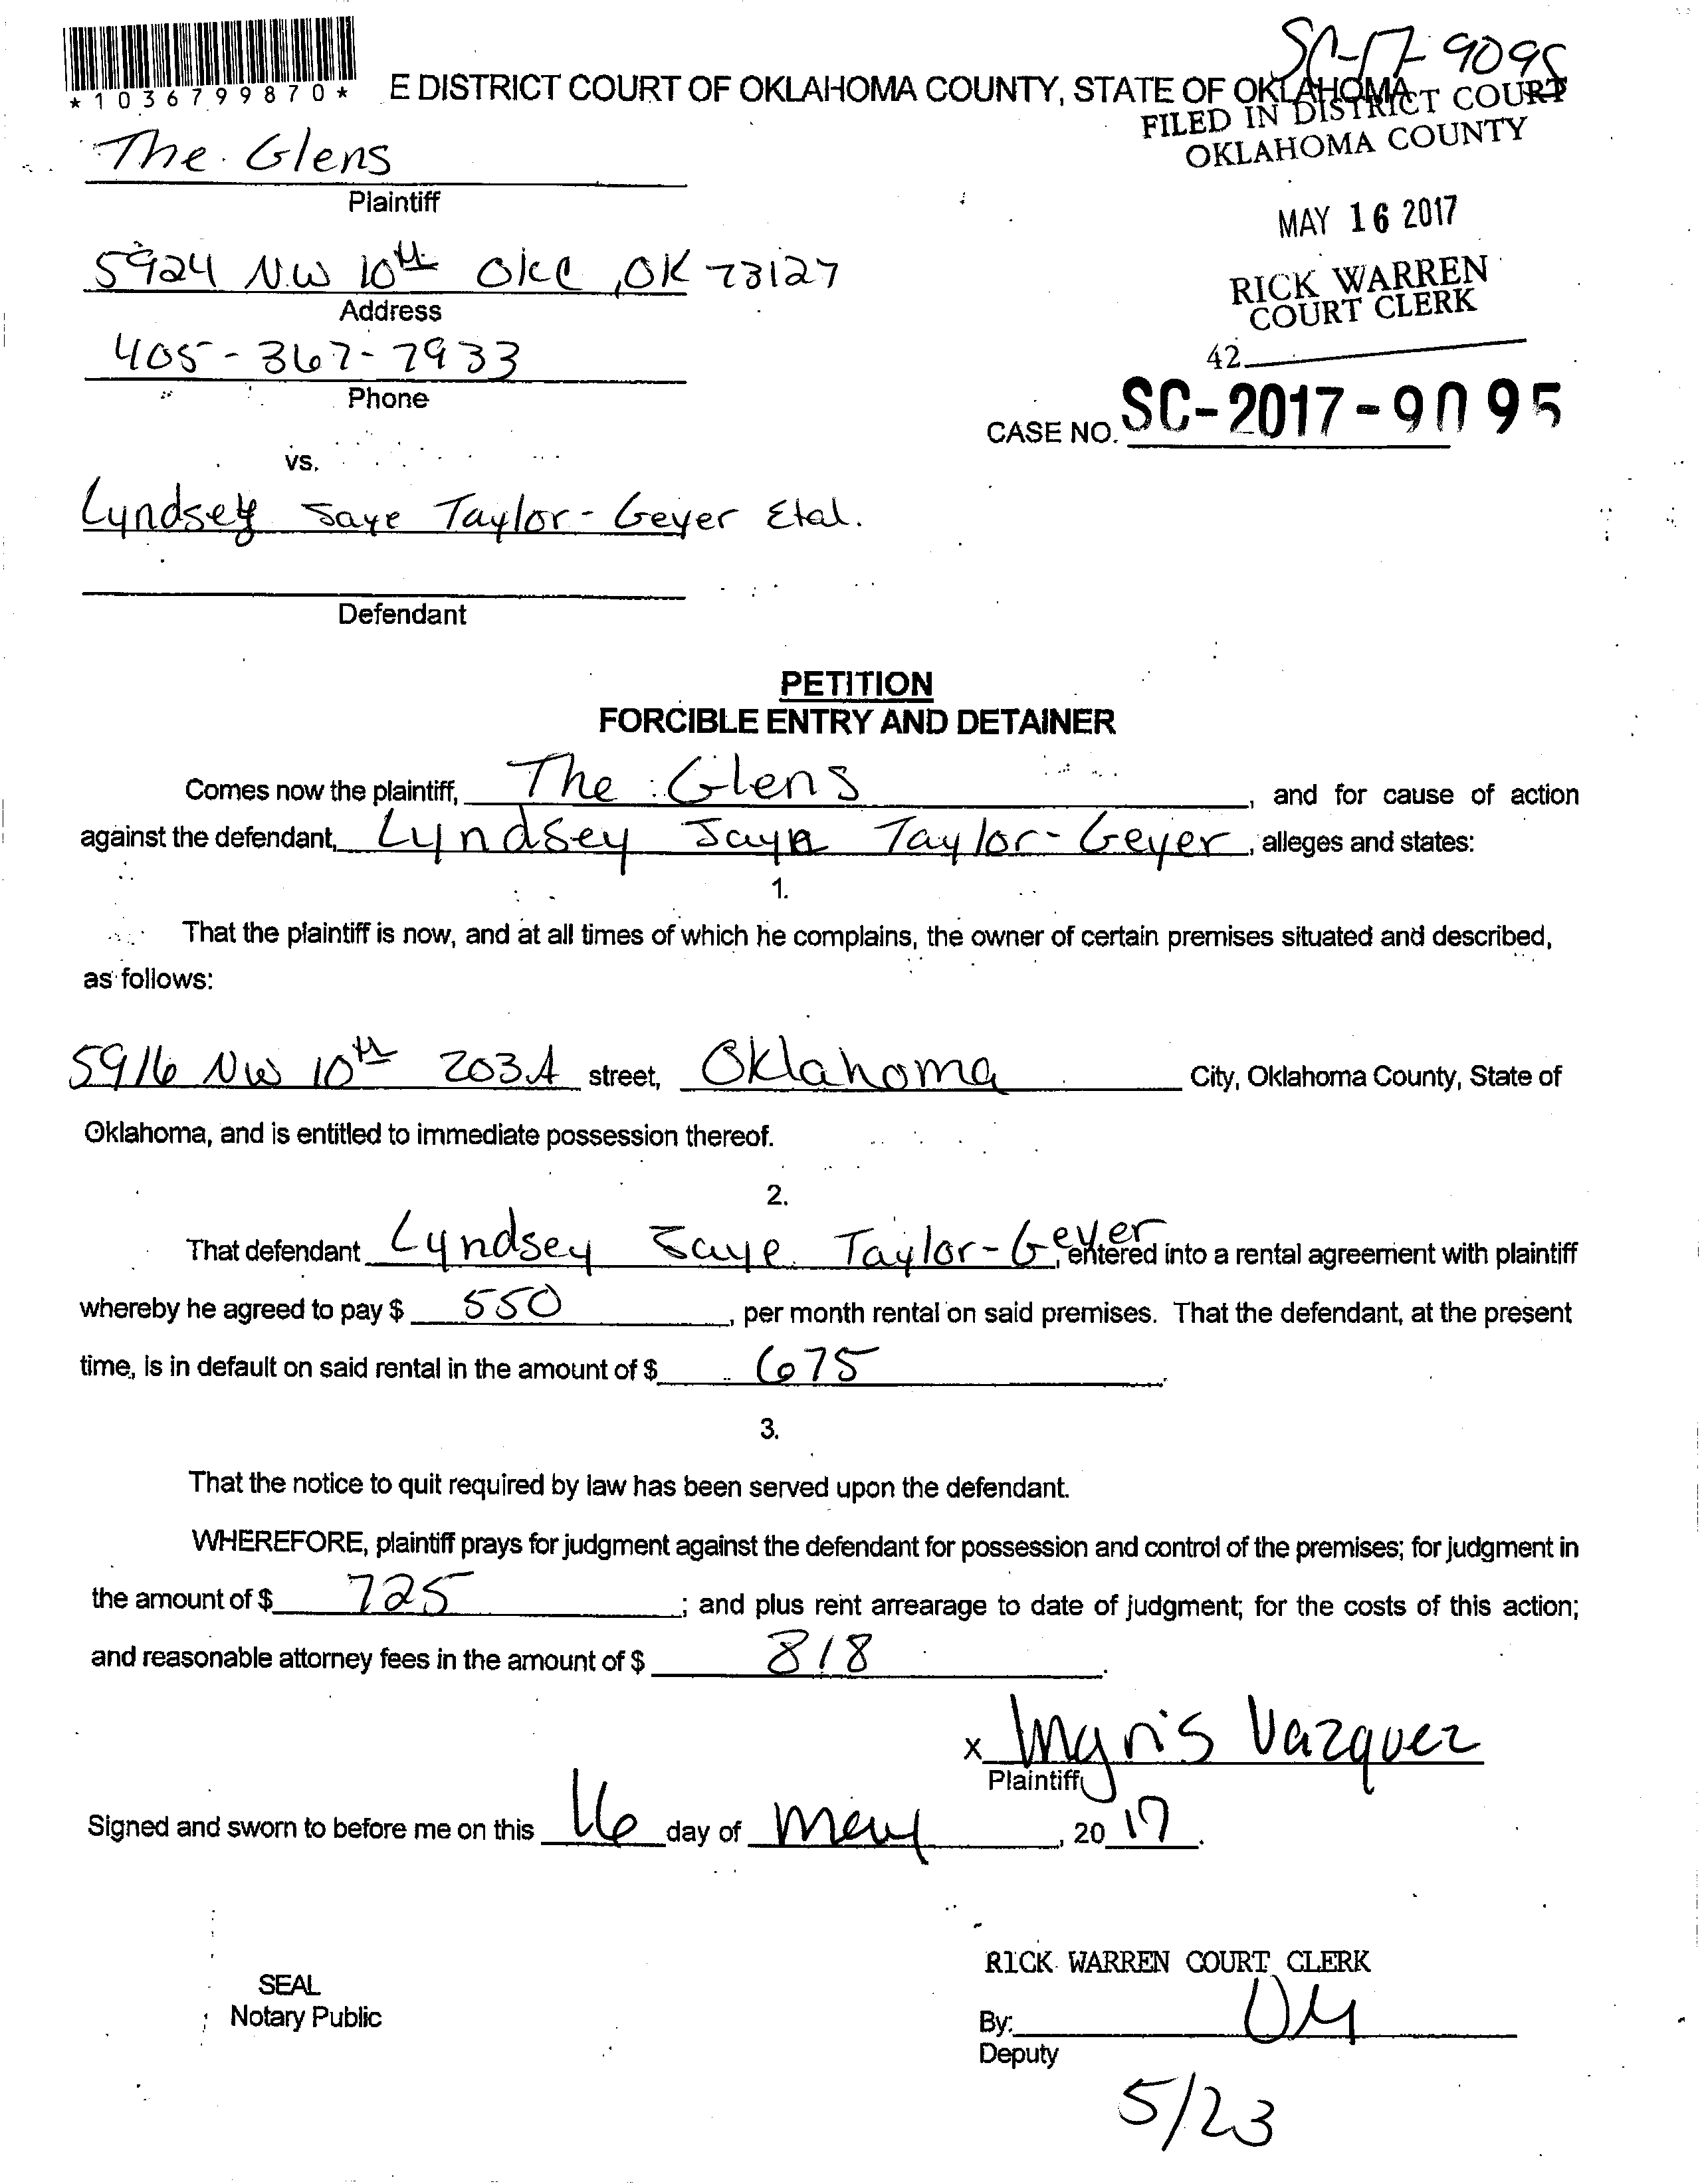 SC-17-9095
*1036799870*
E DISTRICT COURT OF OKLAHOMA COUNTY, STATE OF OKLAHOMA
FILED IN DISTRICT COURT
OKLAHOMA COUNTY
The Glens
Plaintiff
MAY 16 2017
5924 N.W 10th OKC, OK 73127
Address
RICK WARREN
COURT CLERK
405-367-7933
Phone
42
CASE NO. SC-2017-9095
vs.
Lyndsey Jaye Taylor-Geyer Etal.
Defendant
PETITION
FORCIBLE ENTRY AND DETAINER
Comes now the plaintiff, The Glens, and for cause of action
against the defendant, Lyndsey Jaye Taylor-Geyer, alleges and states:
1.
That the plaintiff is now, and at all times of which he complains, the owner of certain premises situated and described,
as follows:
5916 NW 10th 203A street, Oklahoma City, Oklahoma County, State of
Oklahoma, and is entitled to immediate possession thereof.
2.
That defendant Lyndsey Jaye Taylor-Geyer, entered into a rental agreement with plaintiff
whereby he agreed to pay $ 550, per month rental on said premises. That the defendant, at the present
time, is in default on said rental in the amount of $ 675.
3.
That the notice to quit required by law has been served upon the defendant.
WHEREFORE, plaintiff prays for judgment against the defendant for possession and control of the premises; for judgment in
the amount of $ 725; and plus rent arrearage to date of judgment; for the costs of this action;
and reasonable attorney fees in the amount of $ 818.
x Ingris Vazquez
Plaintiff
Signed and sworn to before me on this 16 day of May, 2017.
RICK WARREN COURT CLERK
SEAL
Notary Public
By:
Deputy
5/23